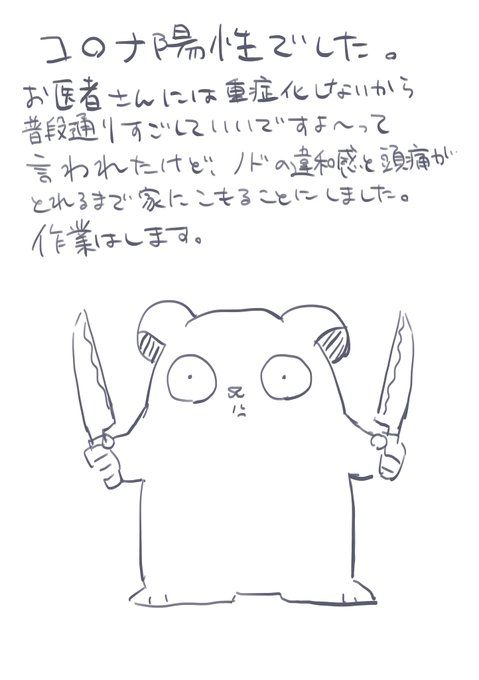 コロナ陽性でした。
お医者さんには重症化しないから
普段通りすごしていいですよ〜って
言われたけど、ノドの違和感と頭痛が
とれるまで家にこもることにしました。
作業はします。